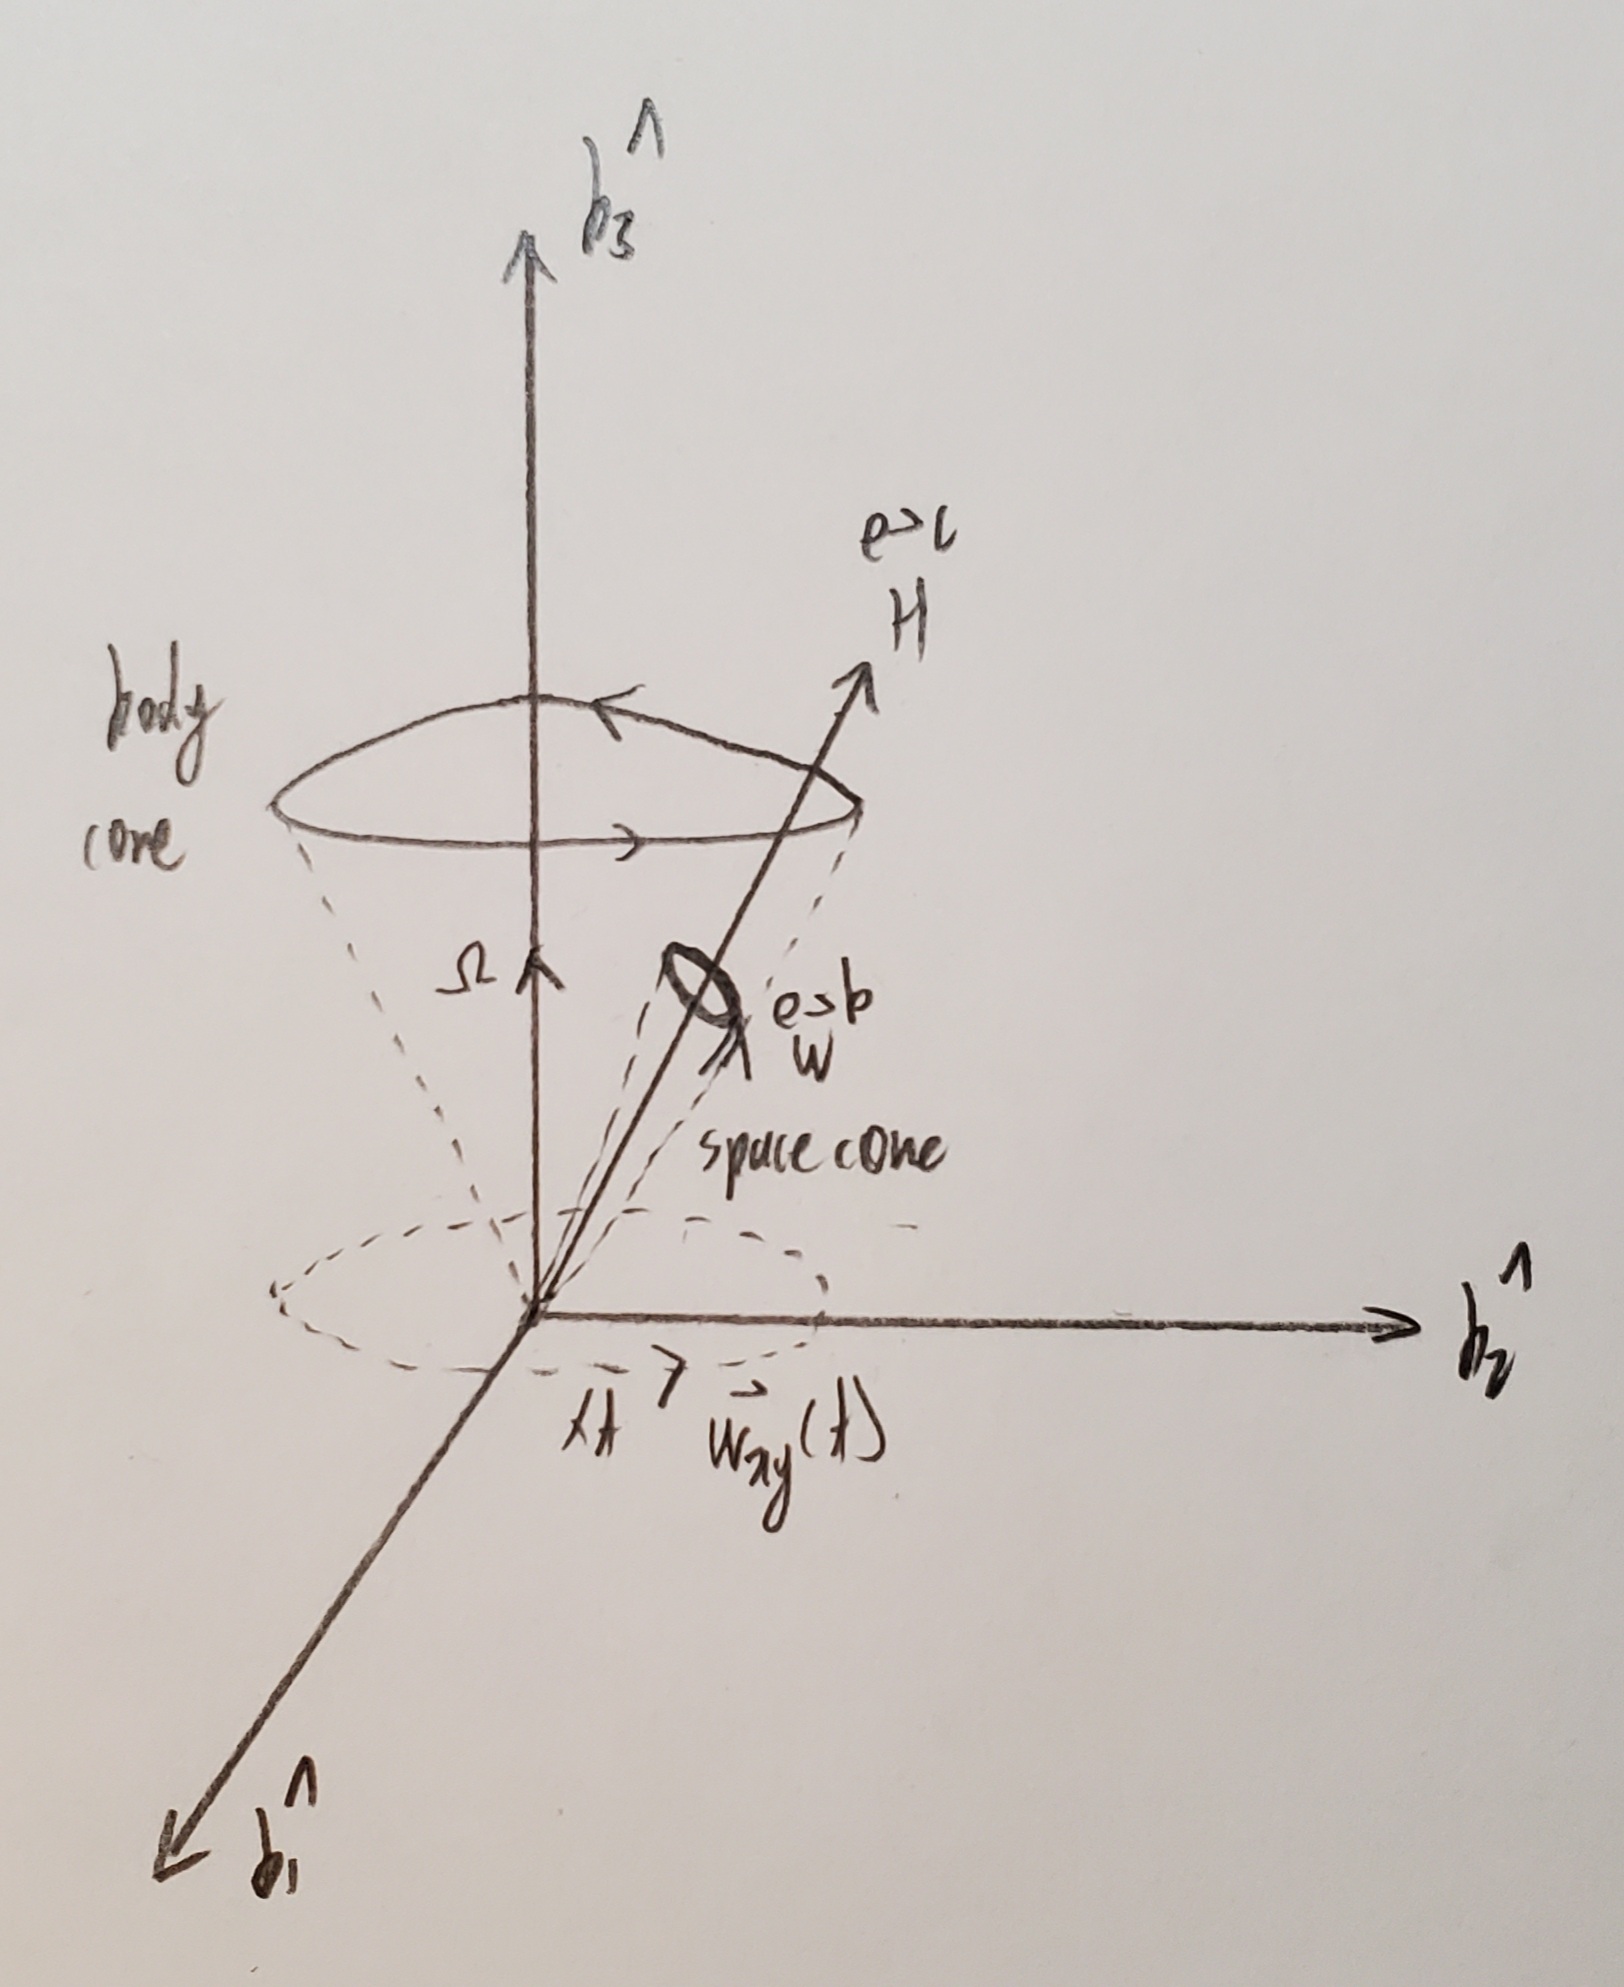 b̂₃
e→c
H
body
cone
Ω
e→b
ω
space cone
b̂₂
λt
ω⃗xy(t)
b̂₁